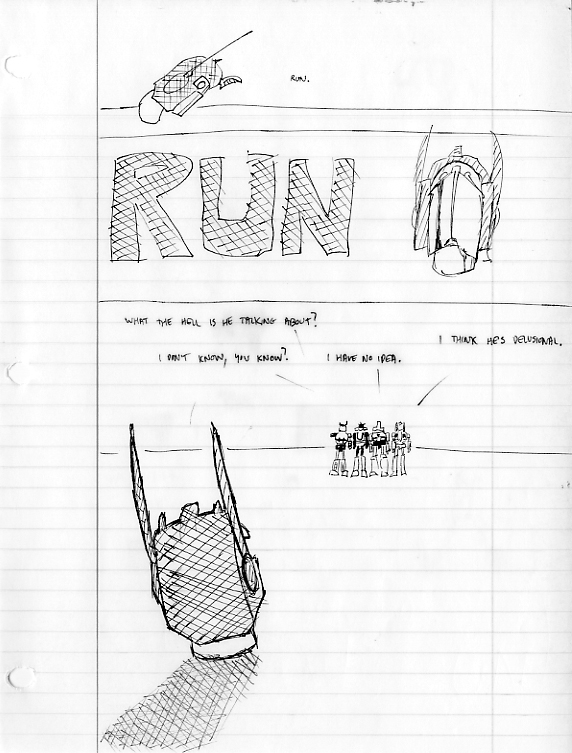 RUN.
RUN
WHAT THE HELL IS HE TALKING ABOUT?
I THINK HE'S DELUSIONAL.
I DON'T KNOW, YOU KNOW?
I HAVE NO IDEA.